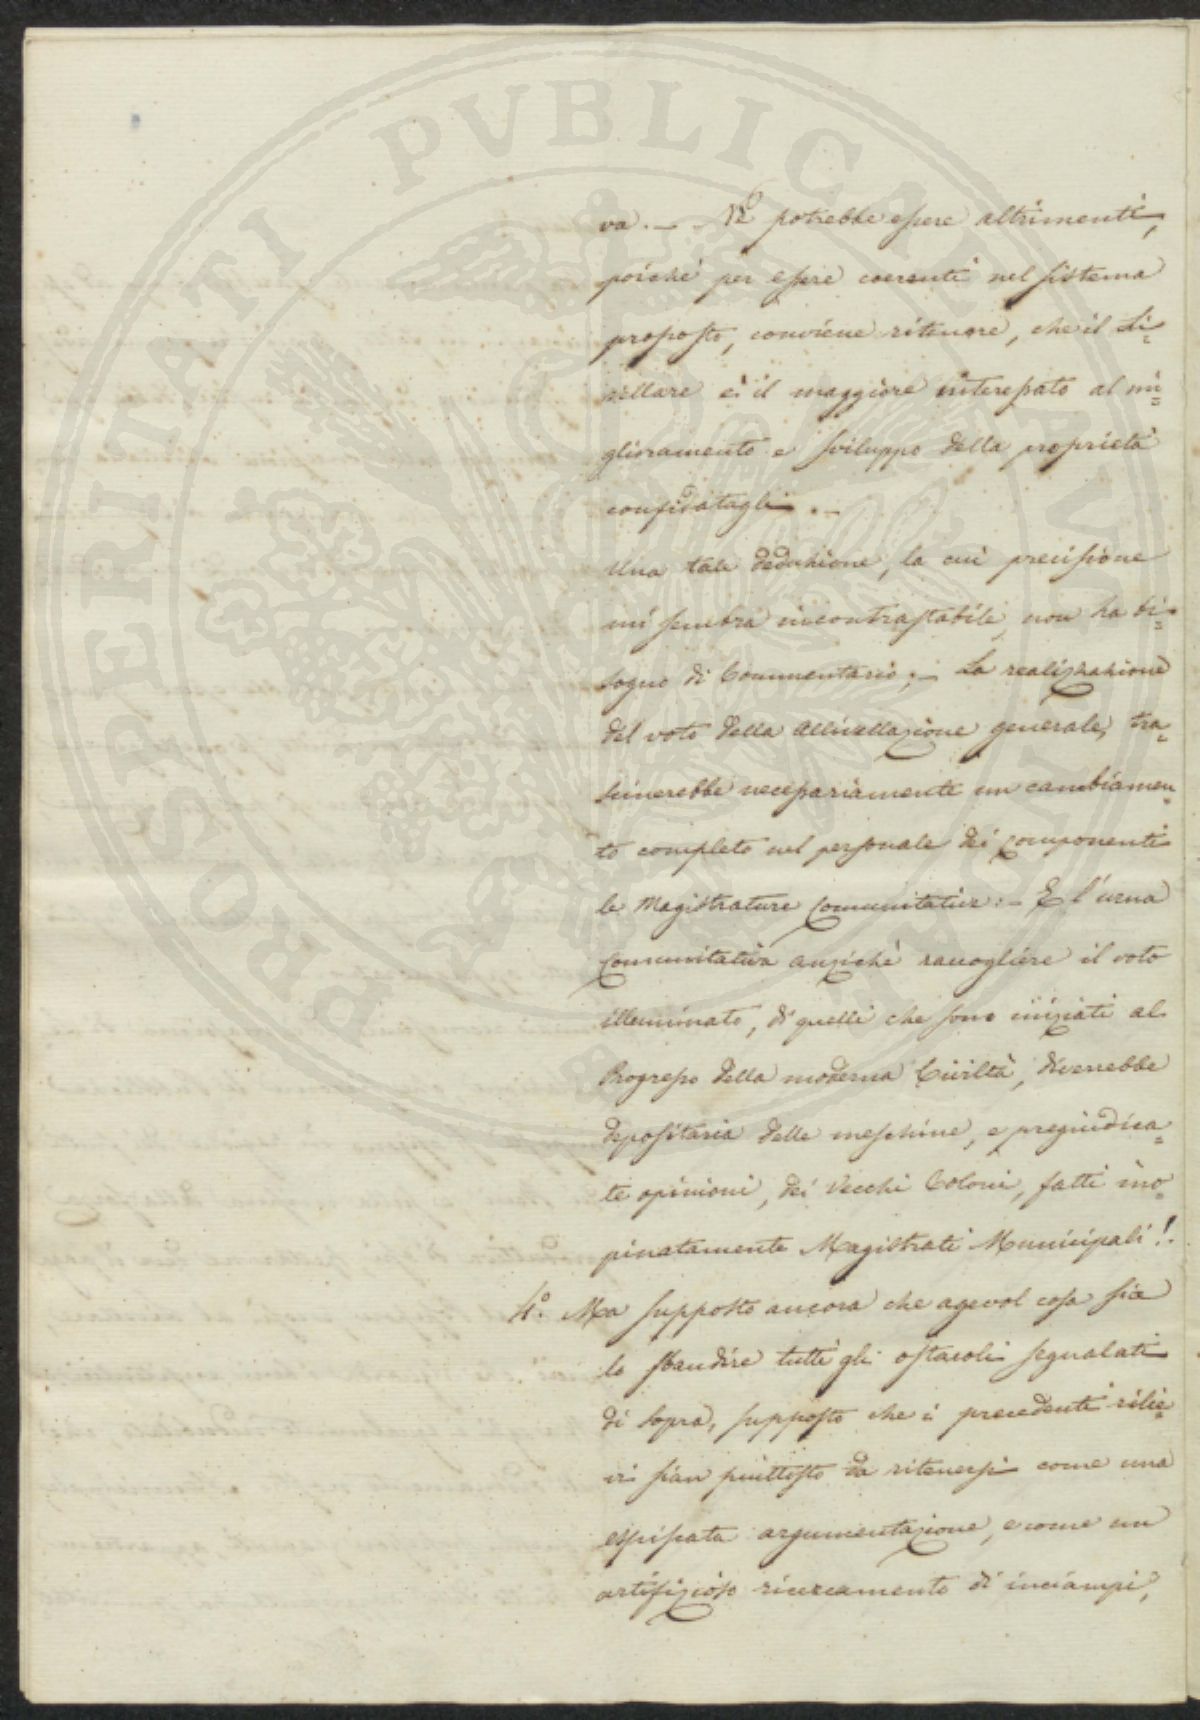 PROSPERITATI PVBLICAE AVGENDAE
va. — Nè potrebbe essere altrimenti,
poichè per essere coerenti nel sistema
proposto, conviene ritenere, che il Li=
vellare è il maggiore interessato al mi=
glioramento e sviluppo della proprietà
confidatagli. —
Una tale deduzione, la cui precisione
mi sembra incontrastabile, non ha bi=
sogno di Commentario; — La realizzazione
del voto della allivellazione generale, tra=
scinerebbe necessariamente un cambiamen=
to completo nel personale dei componenti
le Magistrature Comunitative: — E l'urna
Comunitativa anzichè raccogliere il voto
illuminato, di quelli che sono iniziati al
Progresso della moderna Civiltà, diverrebbe
depositaria delle meschine, e pregiudica=
te opinioni, dei Vecchi Coloni, fatti ino=
pinatamente Magistrati Municipali!.
4.° Ma supposto ancora che agevol cosa sia
lo sbandire tutti gli ostacoli segnalati
di sopra, supposto che i precedenti rilie=
vi sian piuttosto da ritenersi come una
artifizioso ricercamento di inciampi,